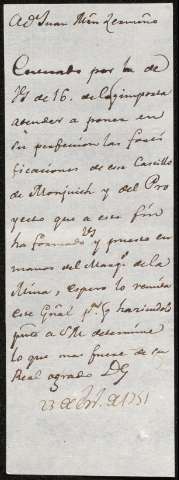 A Dn Juan Mrn Zermeño
Enterado por la de
Vs de 16. de lo q importa
atender a poner en
su perfeccion las forti
ficaciones de ese Castillo
de Monjuich y del Pro
yecto que a este fin
ha formado Vs y puesto en
manos del Marqs de la
Mina, espero lo remita
este Gñal pa q haziendolo
pnte a SM determine
lo que mas fuere de su
Real agrado DG
23 de de 1751